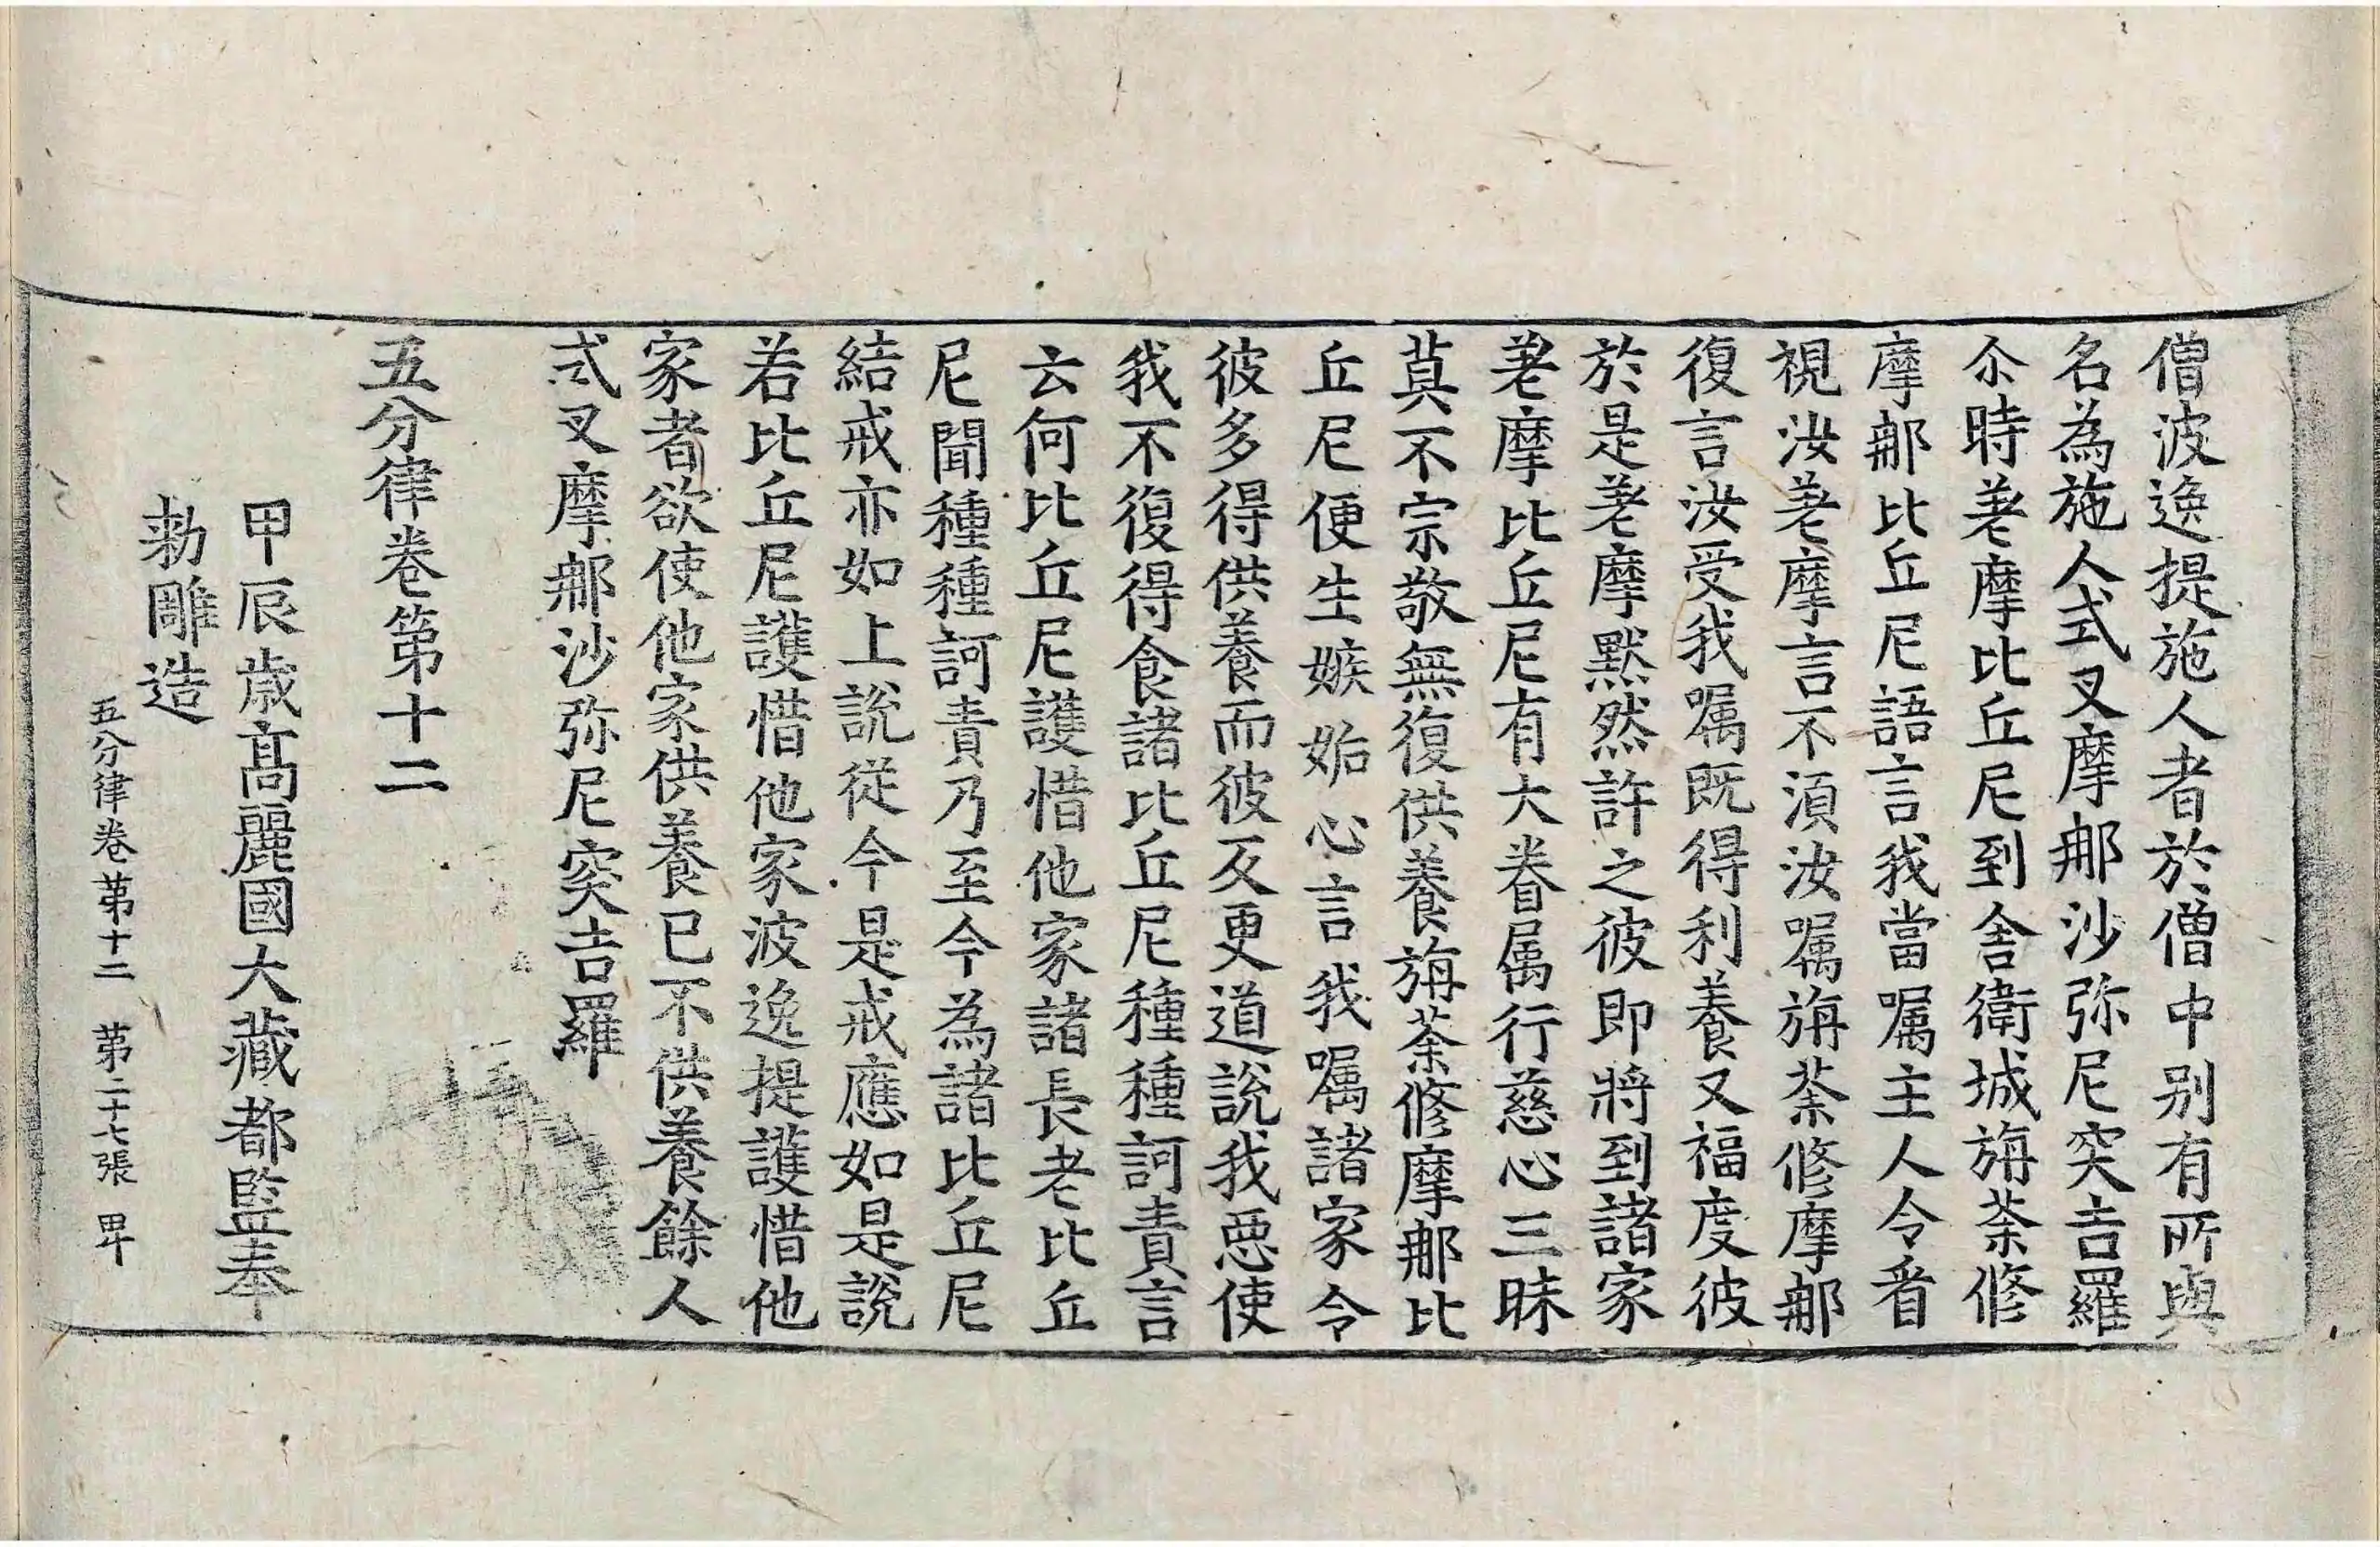 僧波逸提施人者於僧中别有所與
名為施人式叉摩㖠沙弥尼突吉羅
尒時差摩比丘尼到舎衛城旃荼修
摩那比丘尼語言我當嘱主人令㸔
視汝差摩言不湏汝嘱旃荼修摩那
復言汝受我嘱既得利養又福度彼
於是差摩黙然許之彼即將到諸家
差摩比丘尼有大眷属行慈心三昧
莫不宗敬無復供養旃荼修摩那比
丘尼便生嫉妬心言我嘱諸家令
彼多得供養而彼反更道說我惡使
我不復得食諸比丘尼種種訶責言
云何比丘尼護惜他家諸長老比丘
尼聞種種訶責乃至今為諸比丘尼
結戒亦如上說從今是戒應如是說
若比丘尼護惜他家波逸提護惜他
家者欲使他家供養已不供養餘人
式叉摩那沙弥尼突吉羅
五分律卷第十二
甲辰歳髙麗國大藏都監奉
勅雕造
五分律卷第十二　第二十七張　甲